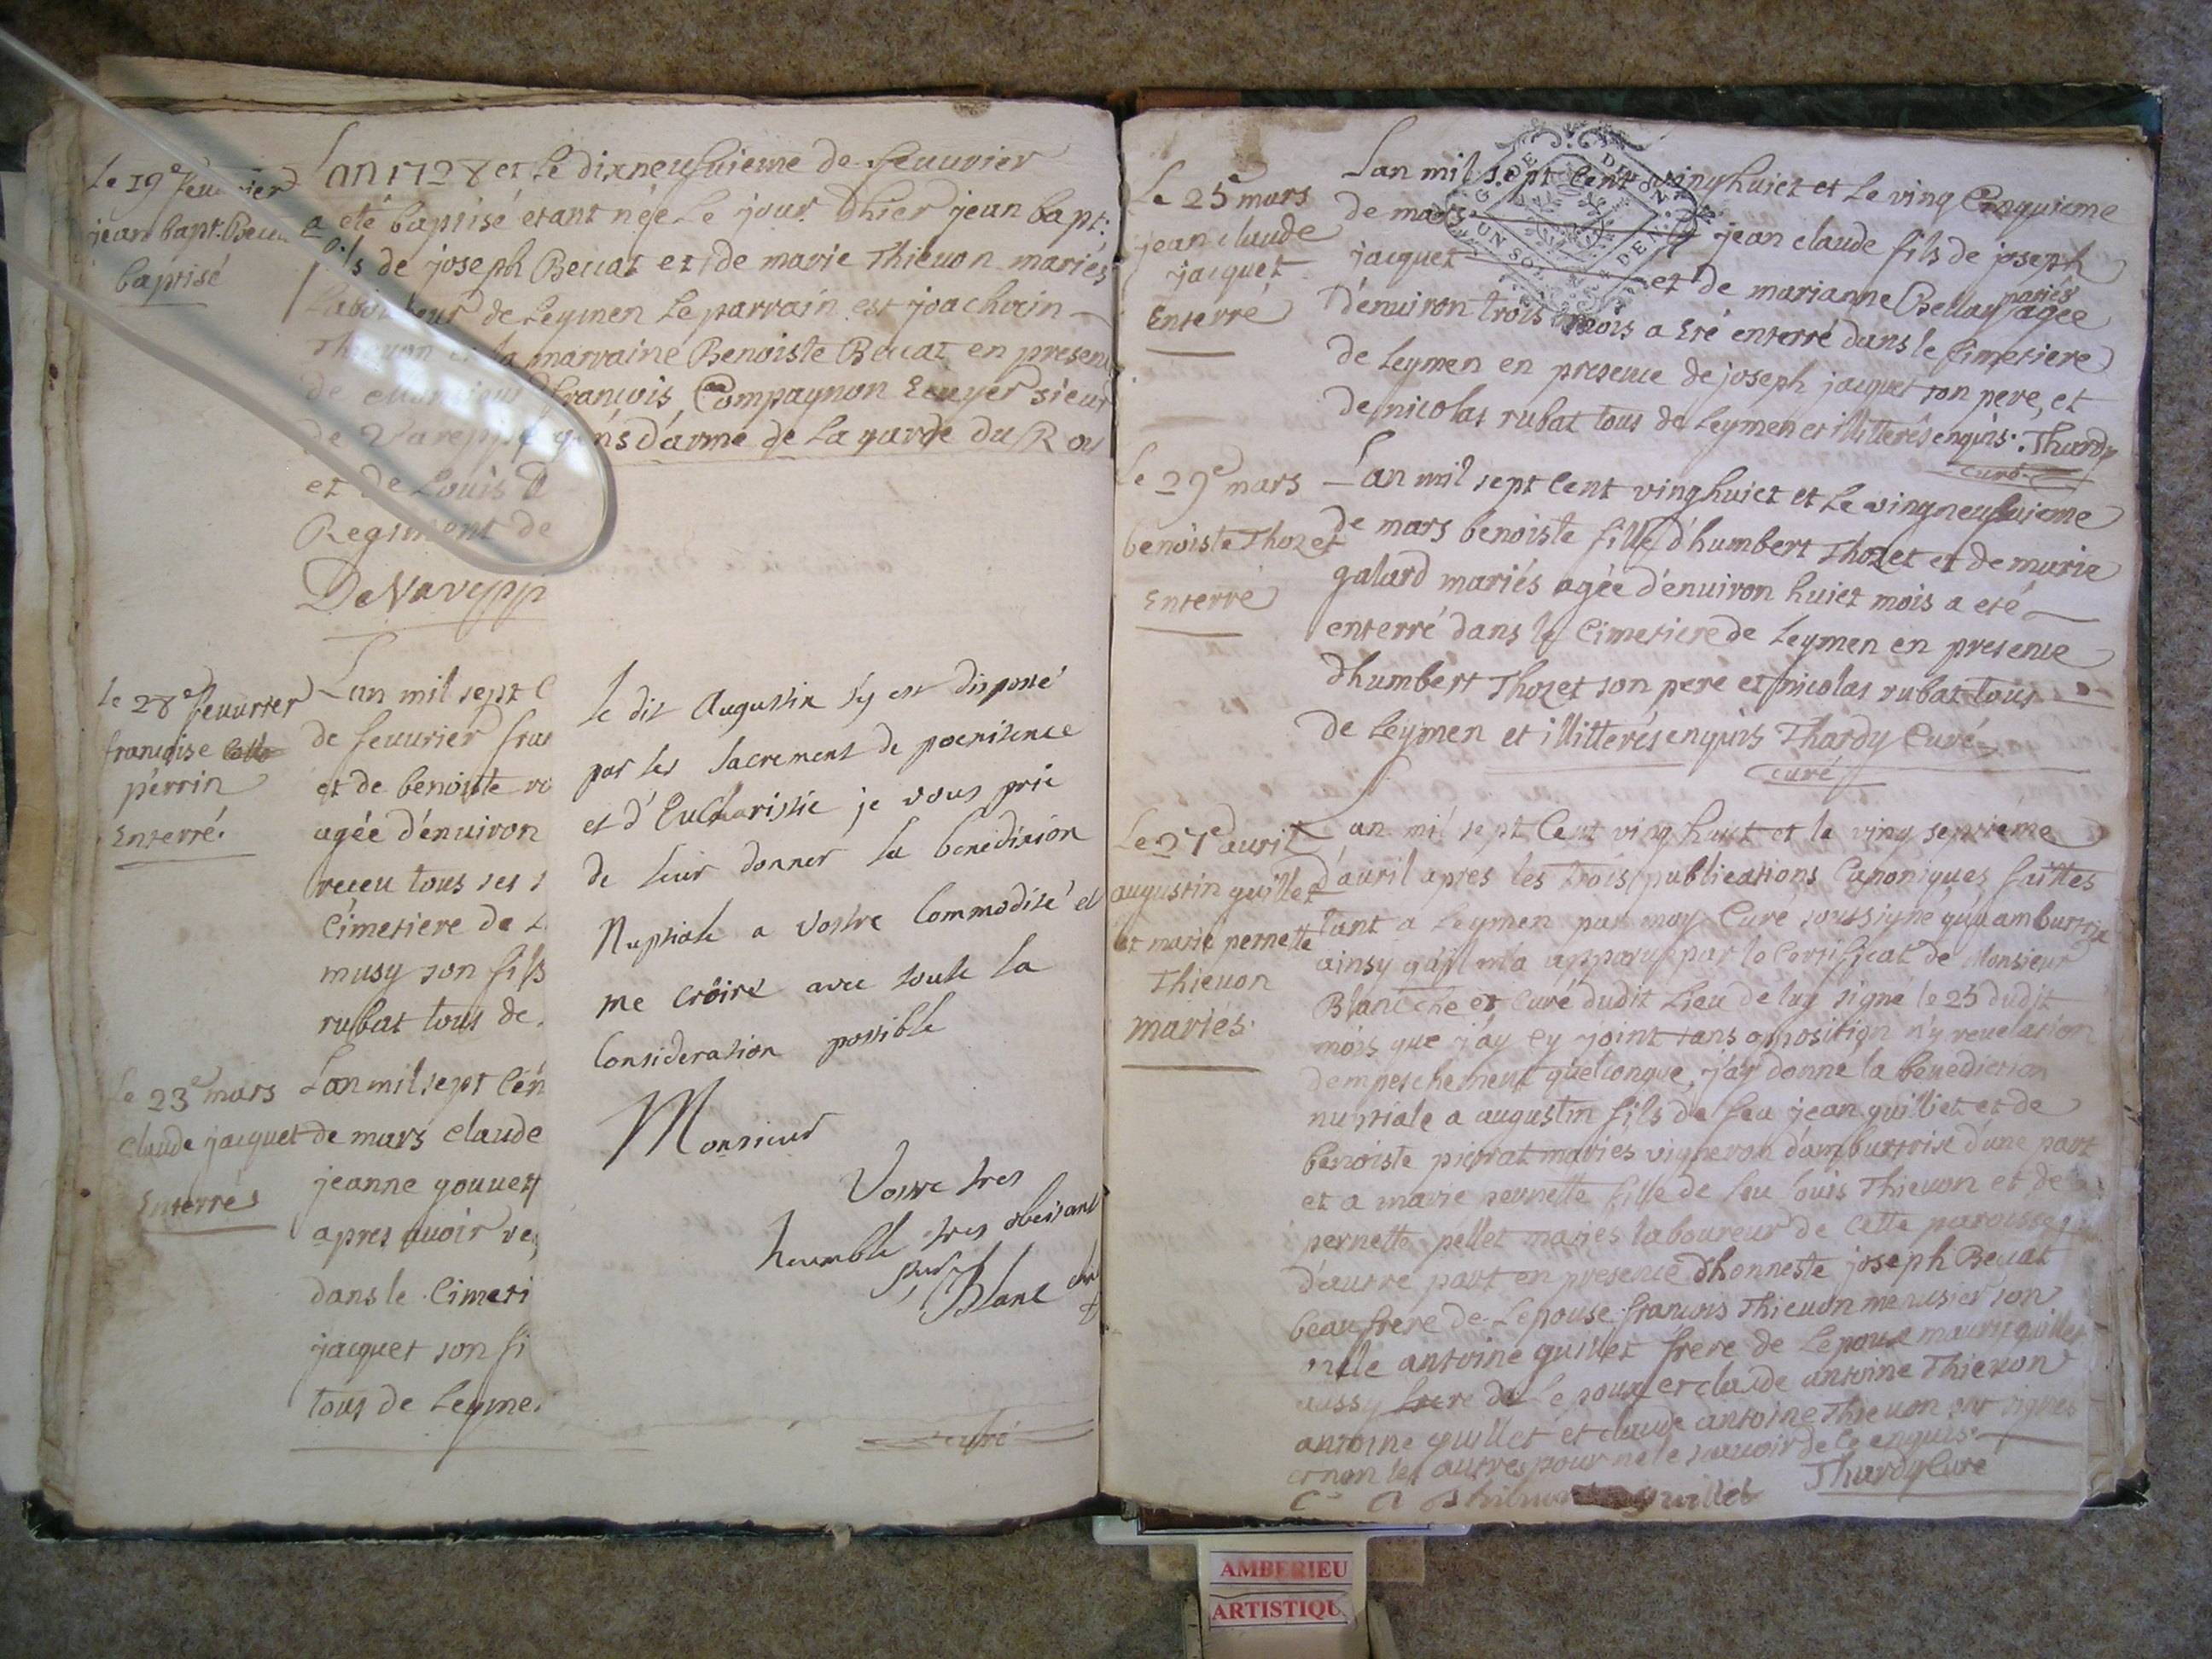 Le 19e feuurier
jean bapt. Becua
baptisé
Lan 1728 et Le dixneufuieme de feuurier
a eté baptisé etant née Le jour dhier jean bapt:
fils de joseph Beuat et de marie Thieuon mariés
Laboureur de Leymen Le parrain est joachain
Thieuon et la marraine Benoiste Beuat en presence
de Monsieur françois Compagnon Ecuyer sieur
de Vareppe gens d'arme de La garde du Roy
et de Louis D
Regiment de
DeVarepp
Le 28e feuurier
françoise
perrin
Enterré.
Lan mil sept C
de feuurier fran
et de benoiste ro
agée d'enuiron
reçeu tous ses s
Cimetiere de L
musy son fils
rubat tous de
Le 23e mars
Claude jacquet
Enterrés
Lan mil sept Cen
de mars claude
jeanne gouuet
apres auoir re
dans le Cimeti
jacquet son fi
tous de Leyme
le dit Augustin s'y est disposé
par les sacrement de poenitence
et d'Eucharistie je vous prie
de leur donner la benediction
Nuptiale a Vostre Commodité et
me croire avec toute la
Consideration possible
Monsieur
Vostre tres
humble tres obeissant
ser
Blanc
curé
Le 25e mars
jean claude
jacquet
Enterré
Lan mil sept Cent vinghuict et Le ving Cinquieme
de mars jean claude fils de joseph
jacquet et de marianne Bellay mariés agée
d'enuiron trois mois a eté enterré dans le Cimetiere
de Leymen en presence de joseph jacquet son pere, et
de nicolas rubat tous de Leymen et illitterés enquis. Thardy
curé
G. DE DIJON
UN SOL DEN.
Le 29e mars
benoiste Thozet
Enterré
Lan mil sept Cent vinghuict et Le vingneufuieme
de mars benoiste fille d'humbert Thozet et de marie
galard mariés agée d'enuiron huict mois a eté
enterré dans le Cimetiere de Leymen en presence
d'humbert Thozet son pere et nicolas rubat tous
de Leymen et illitterés enquis Thardy Curé
curé
Le 27e auril
augustin guillet
et marie pernette
Thieuon
mariés.
Lan mil sept Cent ving huict et le ving septiéme
d'auril apres les trois publications Canoniques faittes
tant a Leymen par moy Curé soussigné qu'a amburtrix
ainsy qu'il m'a apparu par le Certificat de Monsieur
Blanc et Curé dudit Lieu de luy signé le 25 dudit
mois que j'ay cy joint sans opposition n'y reuelation
dempeschement quelconque, j'ay donné la benediction
nuptiale a augustin fils de feu jean guilliet et de
benoiste pierat mariés vigneron damburtrise d'une part
et a marie pernette fille de feu Louis Thieuon et de
pernette pellet mariés laboureur de Cette paroisse
d'autre part en presence dhonneste joseph Beuat
beaufrere de Lepouse françois Thieuon menusier son
oncle antoine guillet frere de Lepoux maurix guillet
aussy frere de Lepoux et claude antoine Thieuon
antoine guillet et claude antoine Thieuon ont signés
et non les autres pour ne le sauoir de Ce enquis.
C A Thieuon guillet Thardy Curé
AMBERIEU
ARTISTIQU